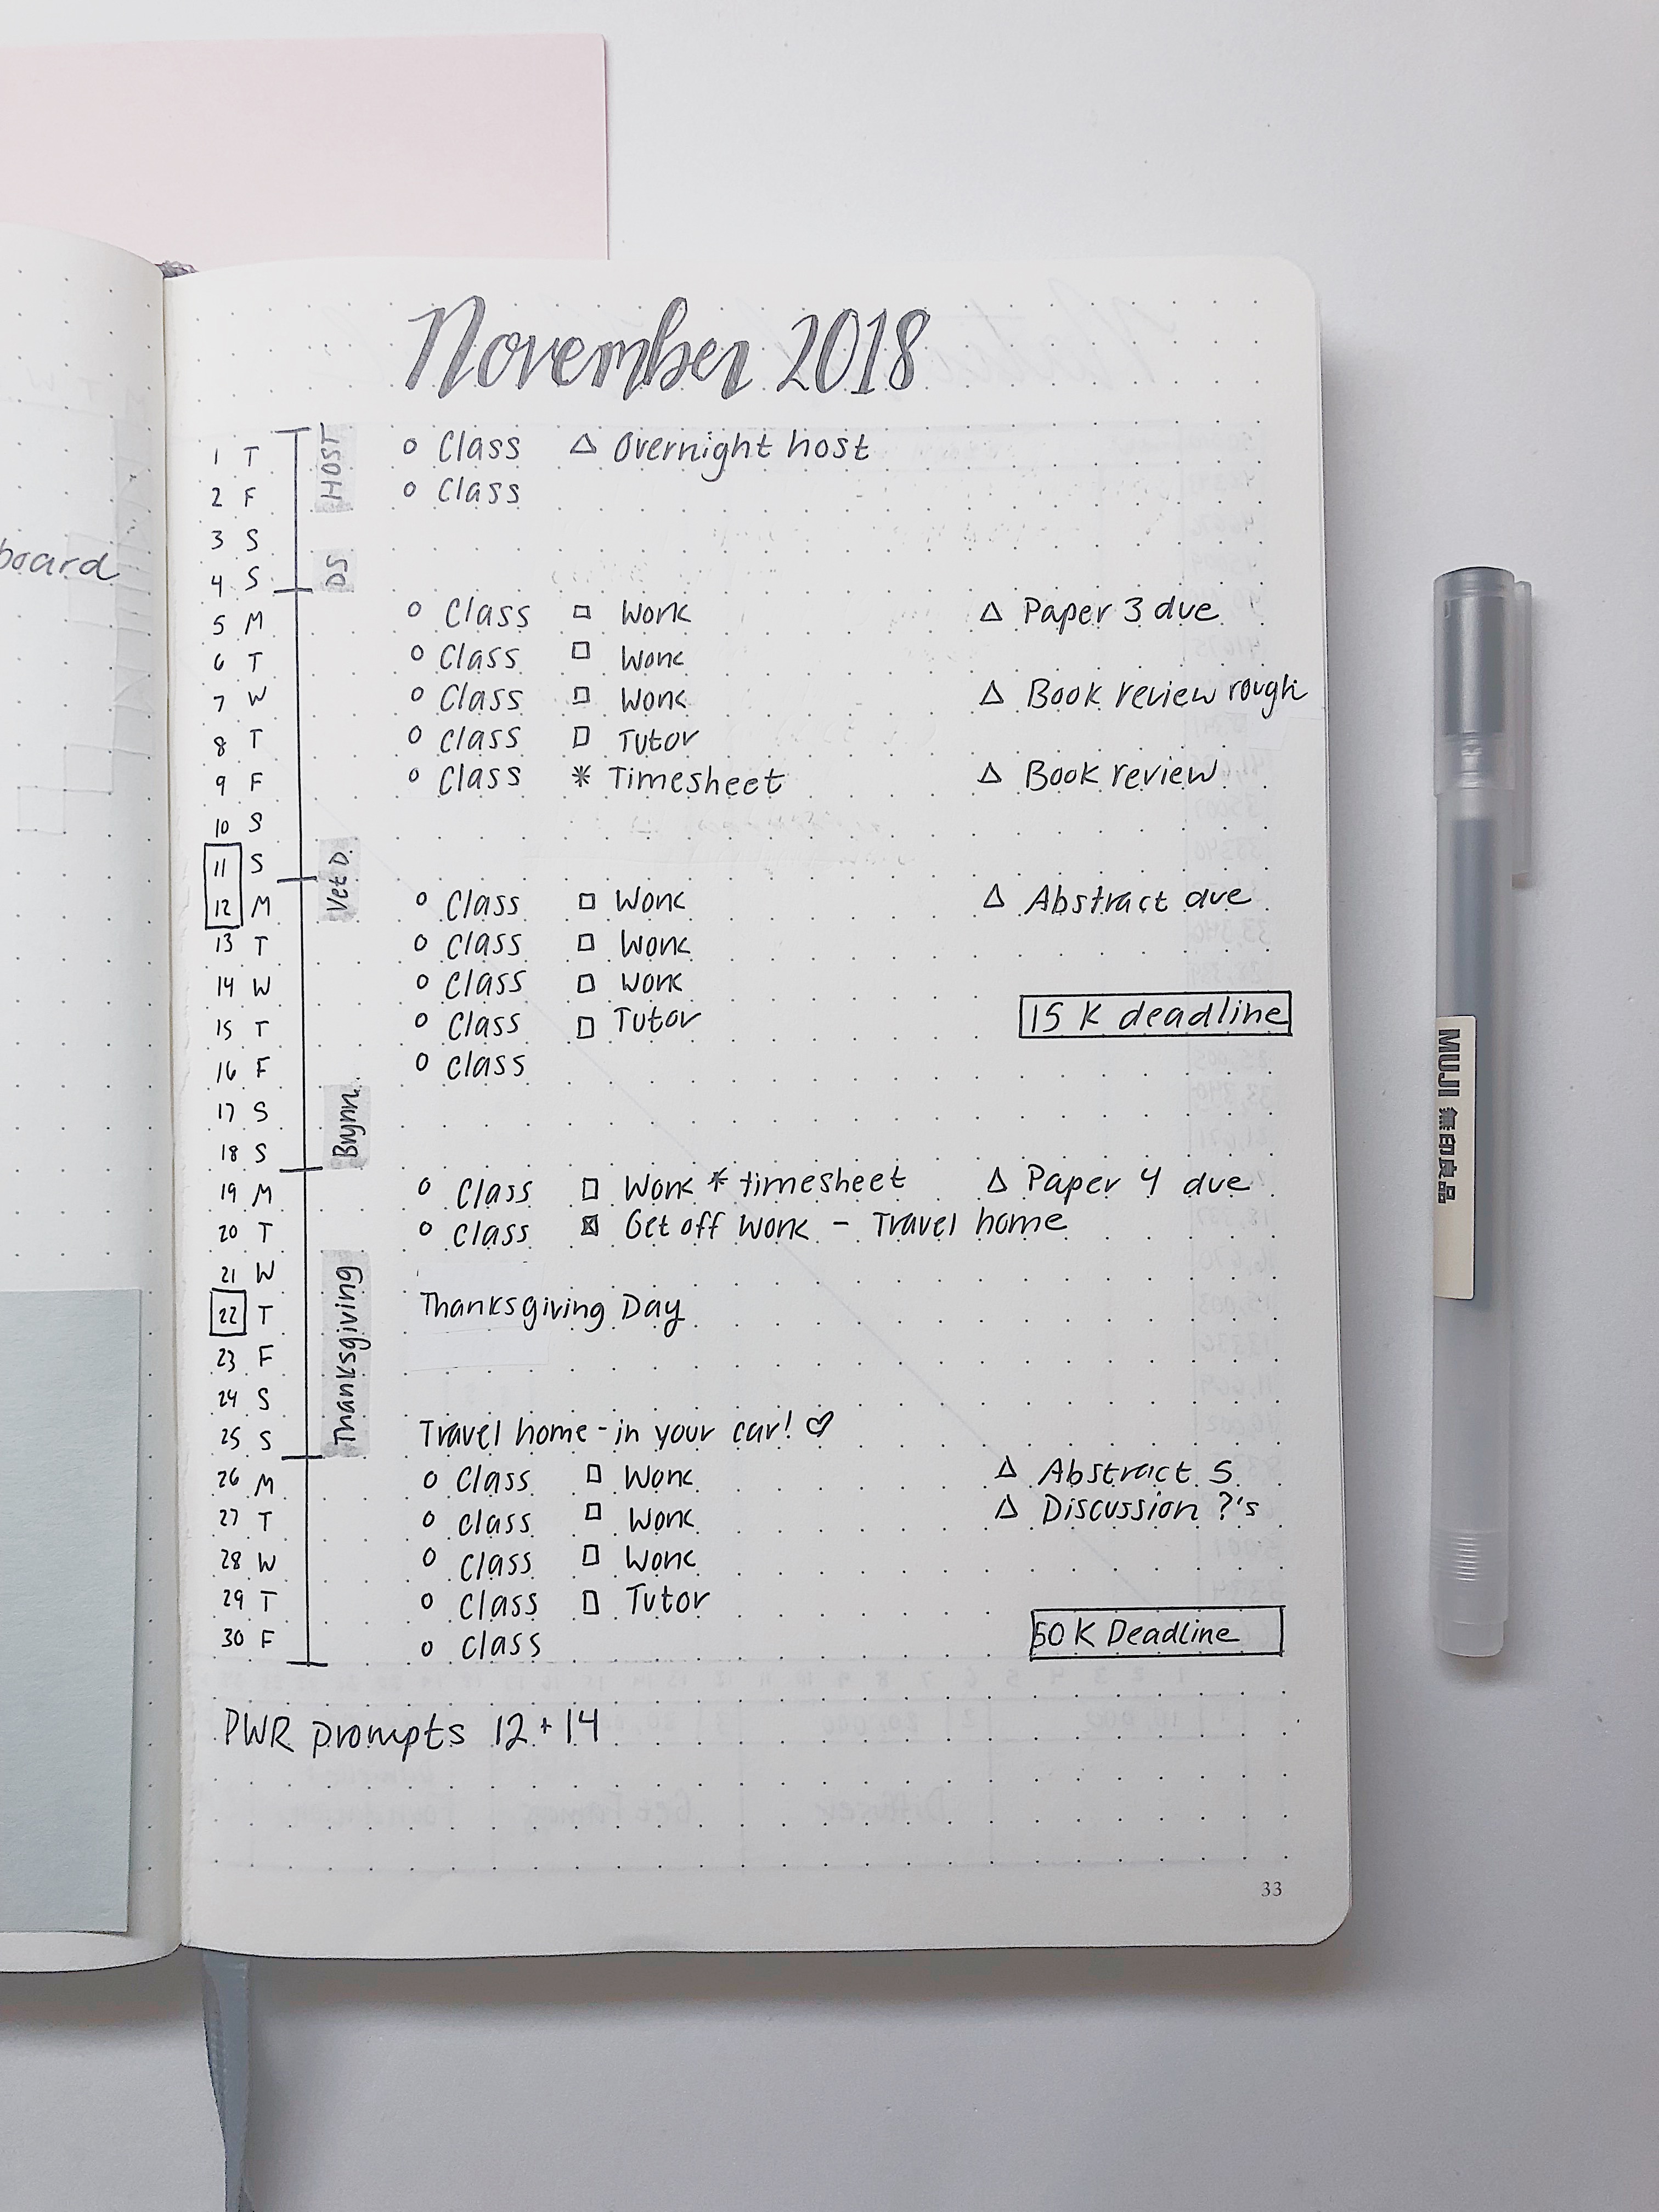 November 2018
HOST
1 T ○ Class △ Overnight host
2 F ○ Class
3 S
DS
4 S
5 M ○ Class □ Work △ Paper 3 due
6 T ○ Class □ Work
7 W ○ Class □ Work △ Book review rough
8 T ○ Class □ Tutor
9 F ○ Class * Timesheet △ Book review
10 S
Vet D.
11 S
12 M ○ Class □ Work △ Abstract due
13 T ○ Class □ Work
14 W ○ Class □ Work
15 T ○ Class □ Tutor 15 K deadline
16 F ○ Class
Brynn
17 S
18 S
19 M ○ Class □ Work * timesheet △ Paper 4 due
20 T ○ Class ☒ Get off work - Travel home
Thanksgiving
21 W
22 T Thanksgiving Day
23 F
24 S
25 S Travel home - in your car! ♡
26 M ○ Class □ Work △ Abstract 5
27 T ○ Class □ Work △ Discussion ?'s
28 W ○ Class □ Work
29 T ○ Class □ Tutor
30 F ○ Class 50 K Deadline
PWR prompts 12 + 14
33
board
MUJI 無印良品